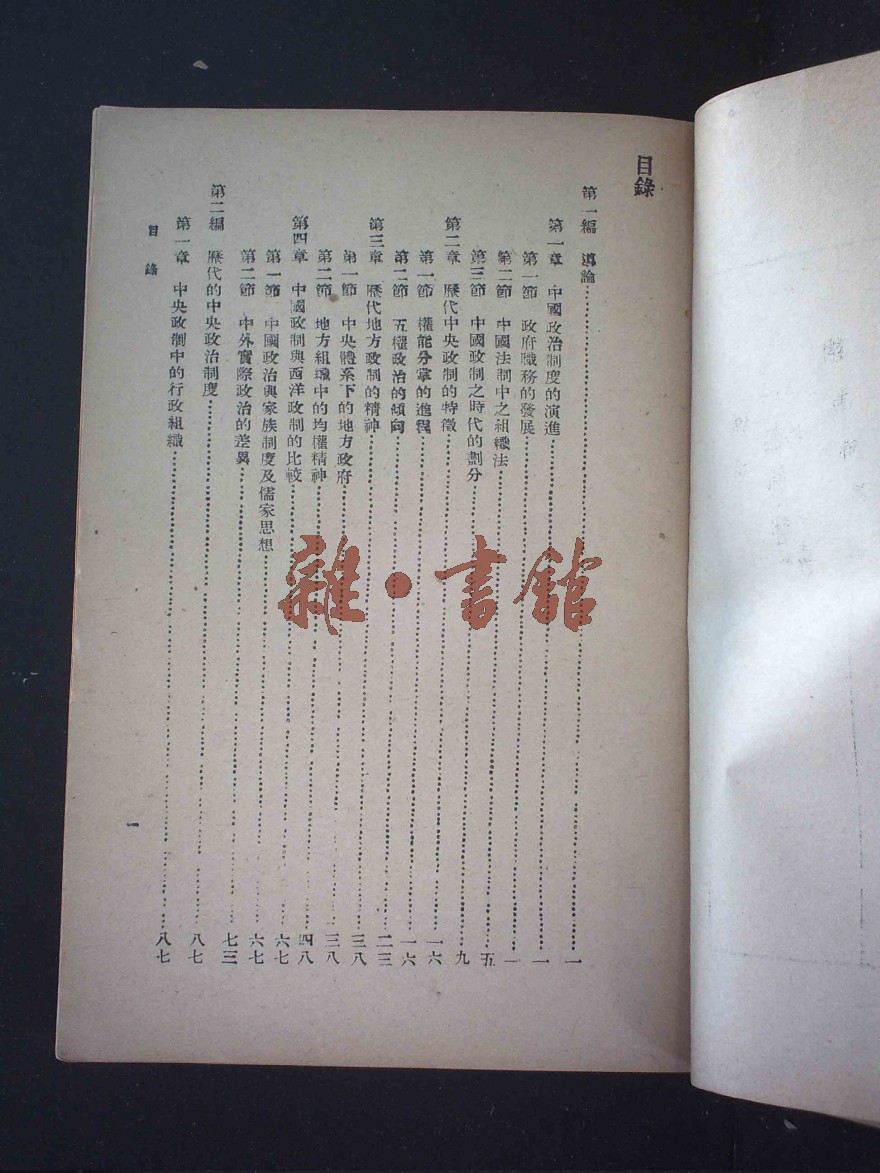 目錄
第一編 導論……一
第一章 中國政治制度的演進……一
第一節 政府職務的發展……一
第二節 中國法制中之組織法……五
第三節 中國政制之時代的劃分……九
第二章 歷代中央政制的特徵……一六
第一節 權能分掌的進程……一六
第二節 五權政治的傾向……二三
第三章 歷代地方政制的精神……三八
第一節 中央體系下的地方政府……三八
第二節 地方組織中的均權精神……四八
第四章 中國政制與西洋政制的比較……六七
第一節 中國政治與家族制度及儒家思想……六七
第二節 中外實際政治的差異……七三
第二編 歷代的中央政治制度……八七
第一章 中央政制中的行政組織……八七
目錄
一
雜·書館